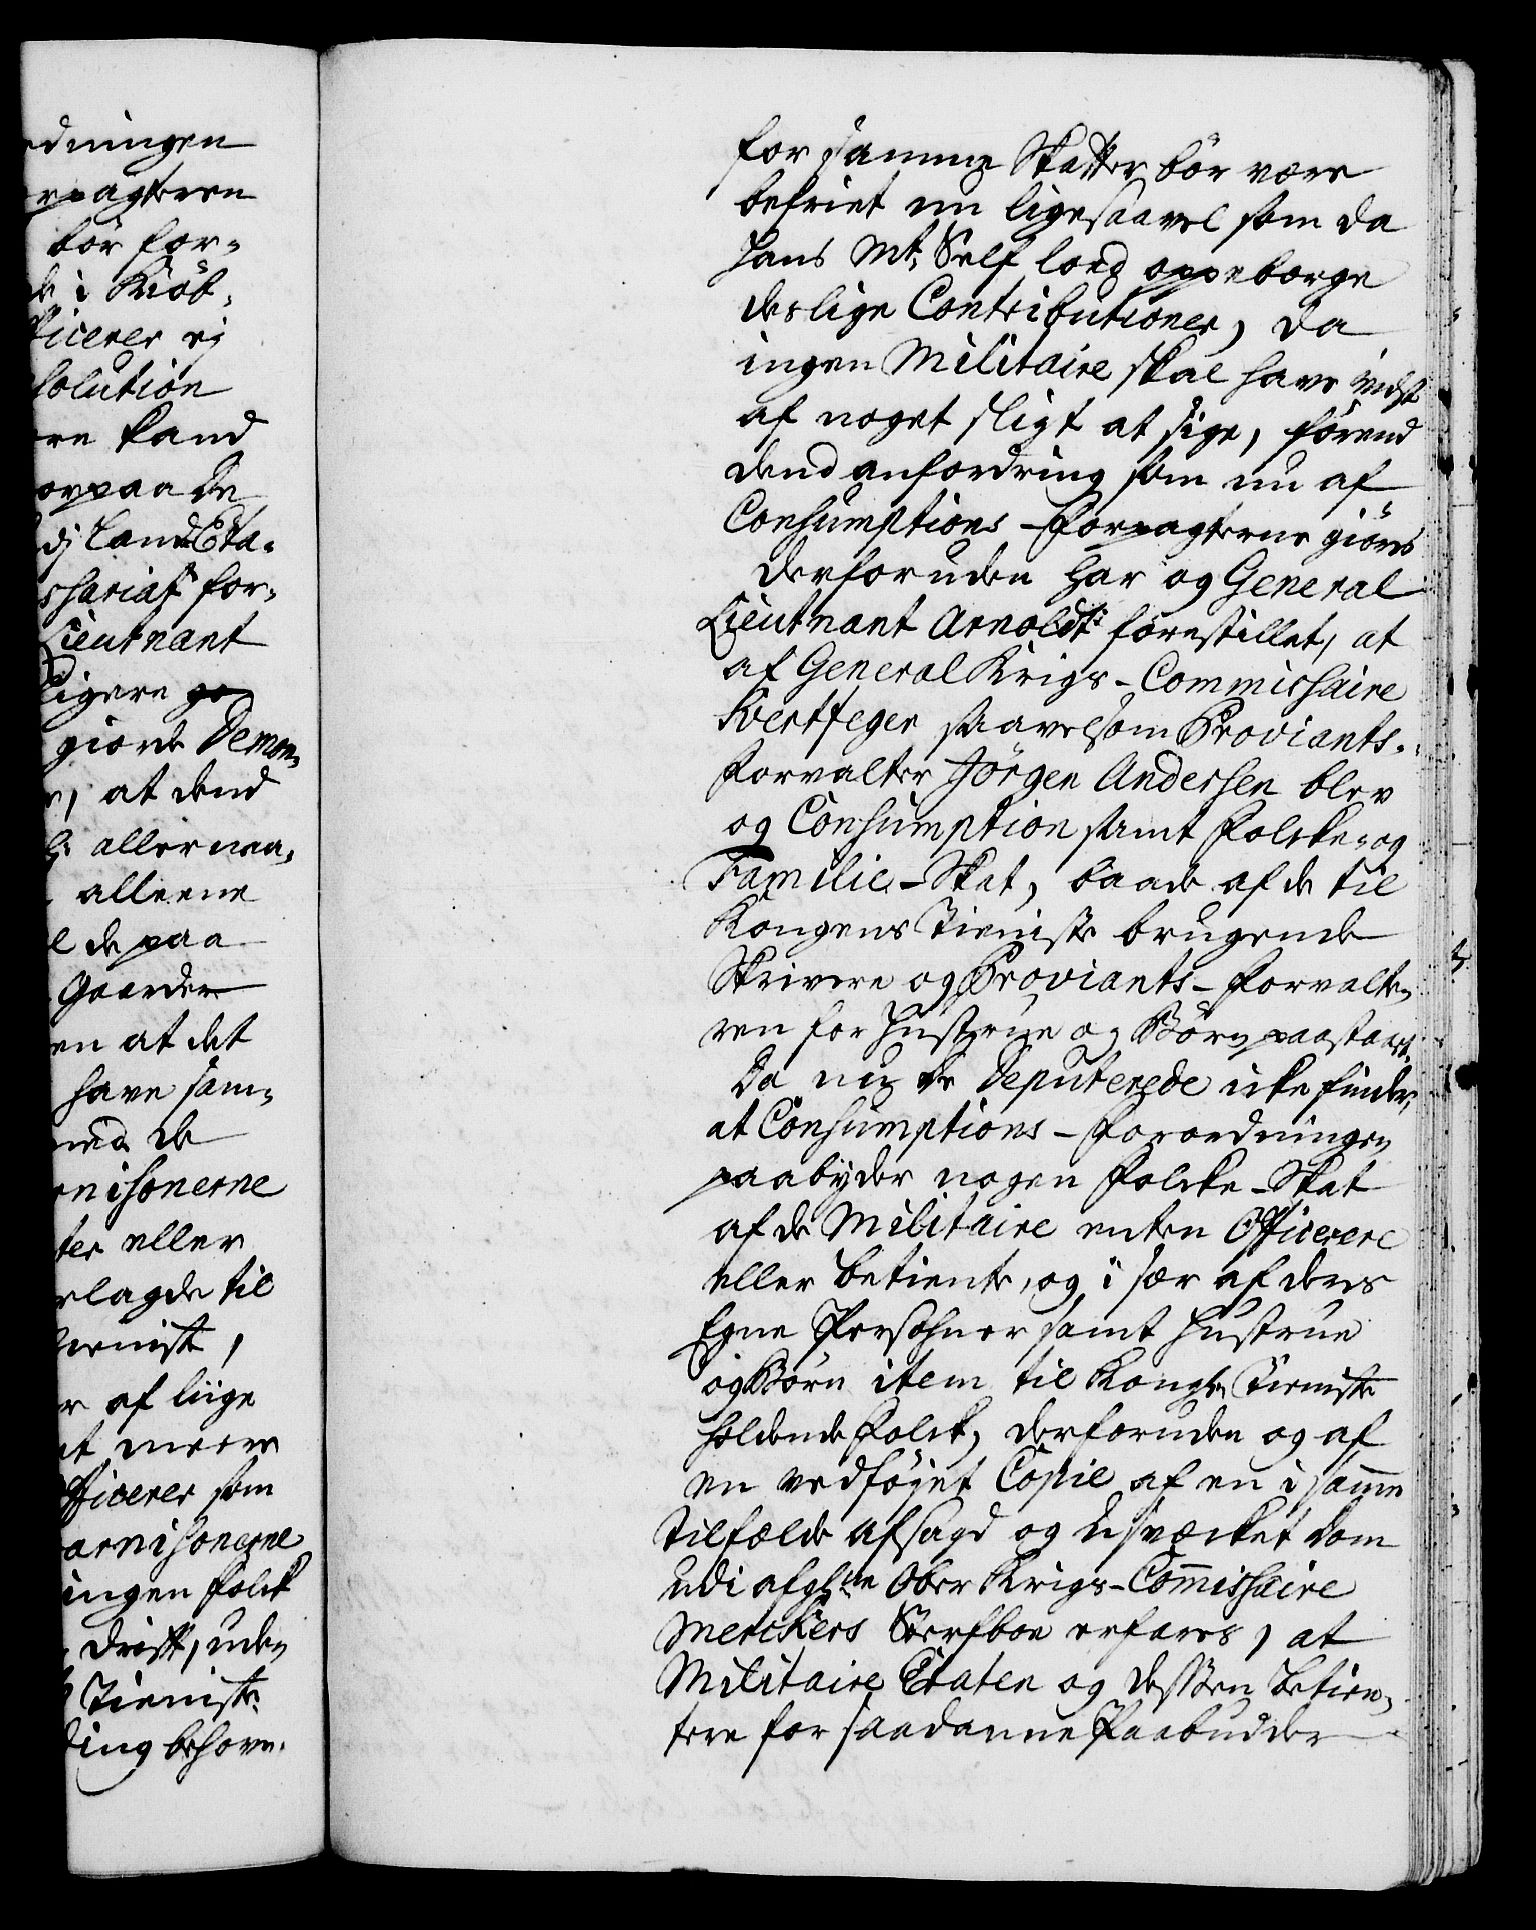 edningen
rpagteren
bör for-
de i Kiöb-
ficerer ej
solution
re kand
orpaa de
dj Land Eta-
shariat for-
Lieutnant
ligere
giorde Demon-
r, at dend
allernaa-
alleene
l de paa
Gaarder
en at det
have sam-
med de
rnisonerne
ter eller
rlagde til
ieniste,
r af liige
et meere
fficerer som
arnisonerne
ingen Folck
Drift, uden
Tieniste
ding behöve-
for samme Skatter bör være
befriet nu ligesaavel som da
Hans Mt. Self lod oppeborge
deslige Contributioner, da
ingen Militaire skal have vidst
af noget sligt at sige, förend
dend anfordring som nu af
Consumptions-Forpagterne giöres
derforuden har og General
Lieutnant Arnoldt forestillet, at
af General Krigs-Commissaire
Svertfeger saavelsom Proviants-
Forvalter Jörgen Andersen blev
og Consumption samt Folcke- og
Familie-Skat, baade af de til
Kongens Tieniste brugende
Skrivere og Proviants-Forvalte-
ren for Hustrue og Börn paastaaet.
Da nu de Deputerede icke finder,
at Consumptions-Forordningen
paabyder nogen Folcke-Skat
af de Militaire enten Officerere
eller betiente, og i sær af deres
Egne Persohner samt Hustrue
og Börn item til Kongens Tieniste
holdende Folck, derforuden og af
en vedföyet Copie af en i samme
tilfælde afsagd og udvercket dom
udi afgl. Ober Krigs-Commissaire
Merckers Sterfboe erfares, at
Militaire Etaten og dessen betien-
tere for saadanne Paabudder